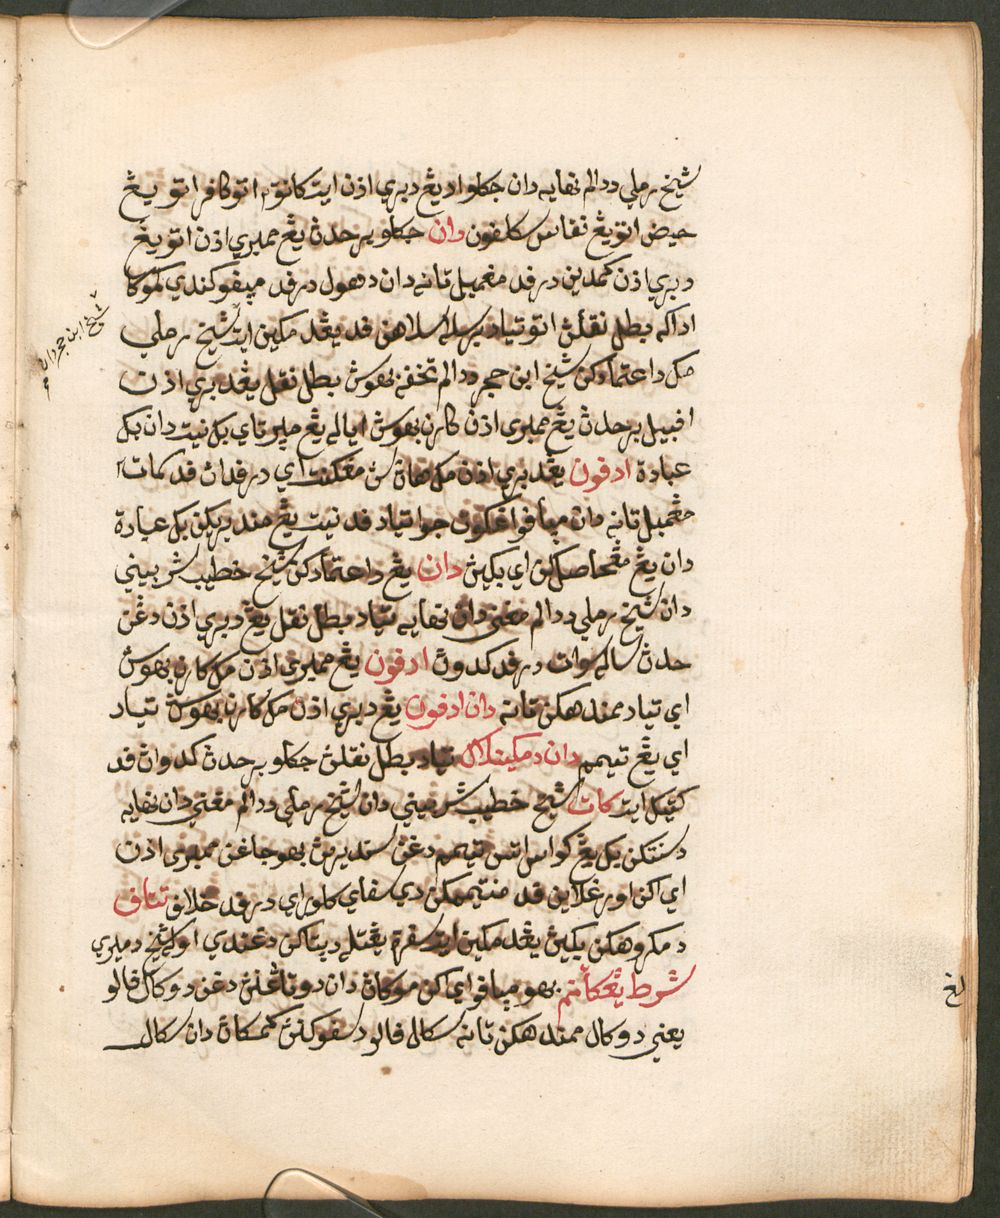 شيخ رملي ددالم نهايه دان جكلو اد يڠ دبري اذن ايت كانق٢ اتو كافر اتو يڠ
حيض اتو يڠ نفاس سكلفون دان جكلو برحدث يڠ ممبري اذن اتو يڠ
دبري اذن كمدين درفد مڠمبل تانه دان دهول درفد مپفوكندي كموك
اداكه بطل نقلڽ اتو تياد برسلاهن فد يڠدمكين ايت شيخ رملي
مك داعتمادكن شيخ ابن حجر ددالم تحفه بهوس بطل نقل يڠدبري اذن
افبيل برحدث يڠ ممبري اذن كارن بهوس اياله يڠ مپرتاي بݢ نيت دان بݢ
عبادة ادفون يڠدبري اذن مك هاڽ سڽ مڠكنت اي درفداڽ فد كات٢
مڠمبل تانه دان مپافو اڠكوت جوا تياد فد نيت يڠ منديريكن بݢ عبادة
دان يڠ مڠحاصلكن اي بݢيڽ دان يڠ داعتمادكن شيخ خطيب شربيني
دان شيخ رملي ددالم مغني دان نهايه تياد بطل نقل يڠ دبري اذن دڠن
حدث ساله سوات درفد كدواڽ ادفون يڠ ممبري اذن مك كارن بهوس
اي تياد ممندهكن تانه دان ادفون يڠ دبري اذن مك كارن بهوس تياد
اي يڠ تيمم دان دمكينله تياد بطل نقلڽ جكلو برحدث كدواڽ فد
كتيك ايت كات شيخ خطيب شربيني دان شيخ رملي ددالم مغني دان نهايه
دسنتكن بݢ يڠ كواس اتس تيمم دڠن سنديرڽ بهو جاڠن ممبري اذن
اي اكن اورڠ لاين فد منتيممكن دي سفاي كلور اي درفد خلاف تتاف
دمكروهكن بݢيڽ يڠدمكين ايت سفرة يڠتله دپتاكن دڠندي اوله شيخ دميري
شرط يڠكأنم بهو مپافو اي اكن موكاڽ دان دوتاڠنڽ دڠن دوكال فالو
يعني دوكال ممندهكن تانه سكالي فالو دسفوكنڽ كمكاڽ دان سكالي
شيخ ابن حجر دان
لڠ